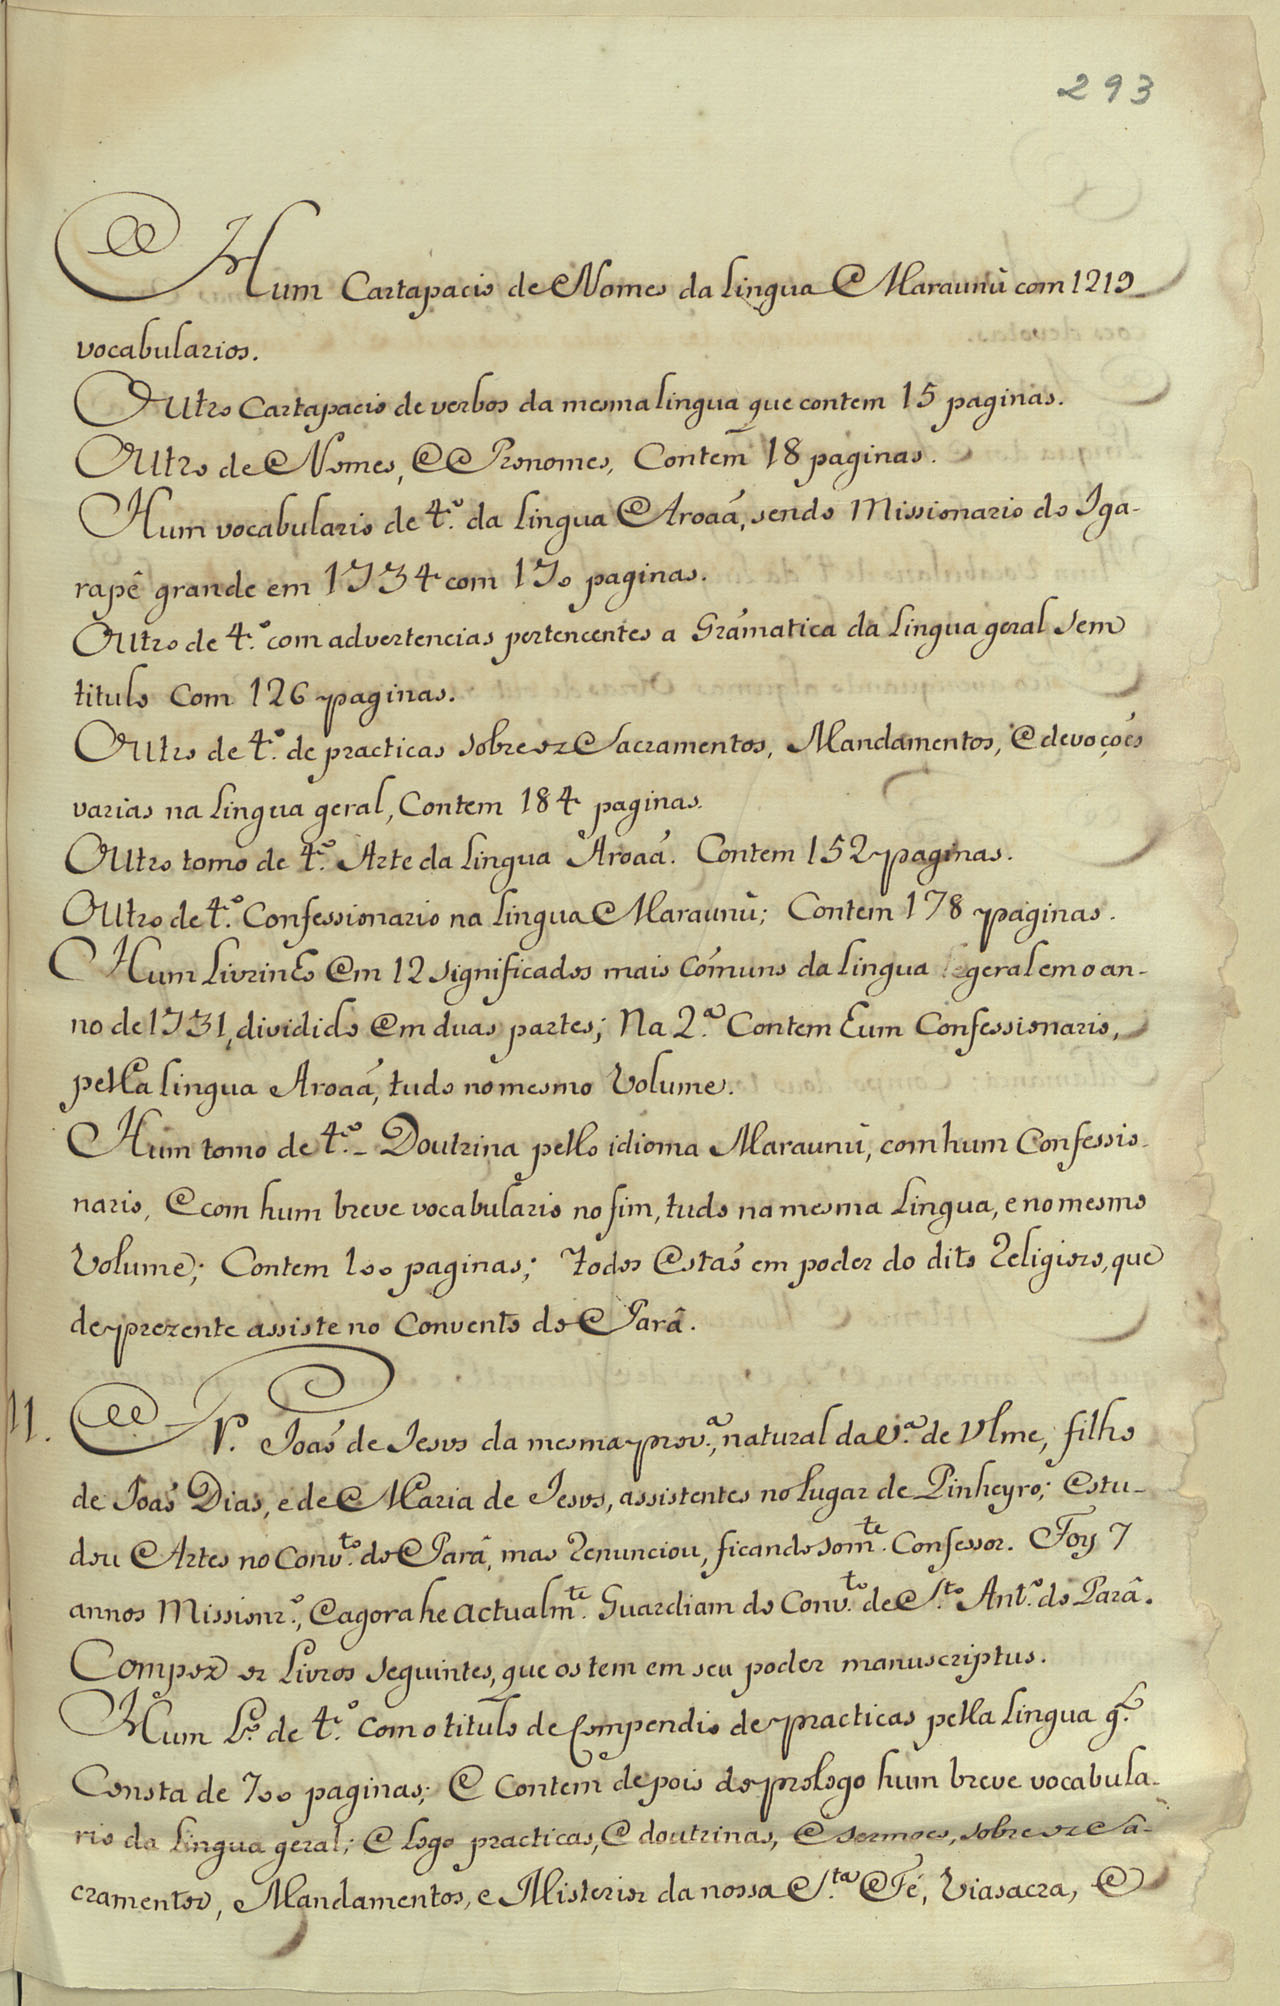 293
Hum Cartapacio de Nomes da Lingua Maraunù com 1219
vocabularios.
Outro Cartapacio de verbos da mesma lingua que contem 15 paginas.
Outro de Nomes, e Pronomes, Contem 18 paginas.
Hum vocabulario de 4.º da Lingua Aroaã, sendo Missionario do Iga-
rapê grande em 1734 com 170 paginas.
Outro de 4.º com advertencias pertencentes a Grãmatica da Lingua geral sem
titulo Com 126 paginas.
Outro de 4.º de practicas sobre oz Sacramentos, Mandamentos, e devoções
varias na Lingua geral, Contem 184 paginas.
Outro tomo de 4.º Arte da Lingua Aroaã. Contem 152 paginas.
Outro de 4.º Confessionario na Lingua Maraunù; Contem 178 paginas.
Hum Livrinho em 12 significados mais cómuns da Lingua geral em o an-
no de 1731, dividido em duas partes; Na 2.ª Contem hum Confessionario,
pella lingua Aroaã, tudo no mesmo Volume.
Hum tomo de 4.º - Doutrina pello idioma Maraunù, com hum Confessio-
nario, e com hum breve vocabulario no fim, tudo na mesma Lingua, e no mesmo
Volume; Contem 100 paginas; todos estaõ em poder do dito Religioso, que
de prezente assiste no Convento do Parâ.
11. Fr. Joaõ de Jesus da mesma prov.ª, natural da V.ª de Ulme, filho
de Joaõ Dias, e de Maria de Jesus, assistentes no Lugar de Pinheyro; Estu-
dou Artes no Conv.to do Parâ, mas renunciou, ficando som.te Confessor. Foy 7
annos Mission.rº, e agora he actualm.te Guardiam do Conv.to de S.to Ant.º do Parâ.
Compoz oz Livros seguintes, que os tem em seu poder manuscriptus.
Hum L.º de 4.º com o titulo de Compendio de practicas pella Lingua g.l
Consta de 700 paginas; e contem depois do prologo hum breve vocabula-
rio da Lingua geral; e logo practicas, e doutrinas, e sermoes, sobre oz Sa-
cramentos, Mandamentos, e Misterios da nossa S.ta Fé, Viasacra, e